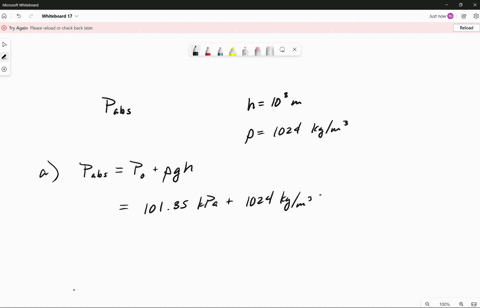 Microsoft Whiteboard
Whiteboard 17
Just now
Try Again Please reload or check back later. Reload
P abs
h = 10³ m
ρ = 1024 kg/m³
a) P abs = P₀ + ρgh
= 101.35 kPa + 1024 kg/m³ ·
100%